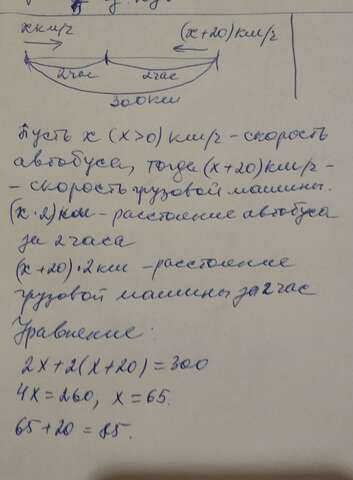 x км/г (x+20) км/г
2 час 2 час
300 км
Пусть x (x>0) км/г - скорость
автобуса, тогда (x+20) км/г -
- скорость грузовой машины.
(x·2) км - расстояние автобуса
за 2 часа
(x+20)·2 км - расстояние
грузовой машины за 2 час
Уравнение:
2x+2(x+20)=300
4x=260, x=65.
65+20=85.